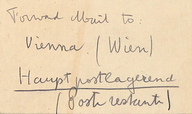 Forward Mail to:
Vienna. (Wien)
Hauptpostlagernd
(Poste restante)